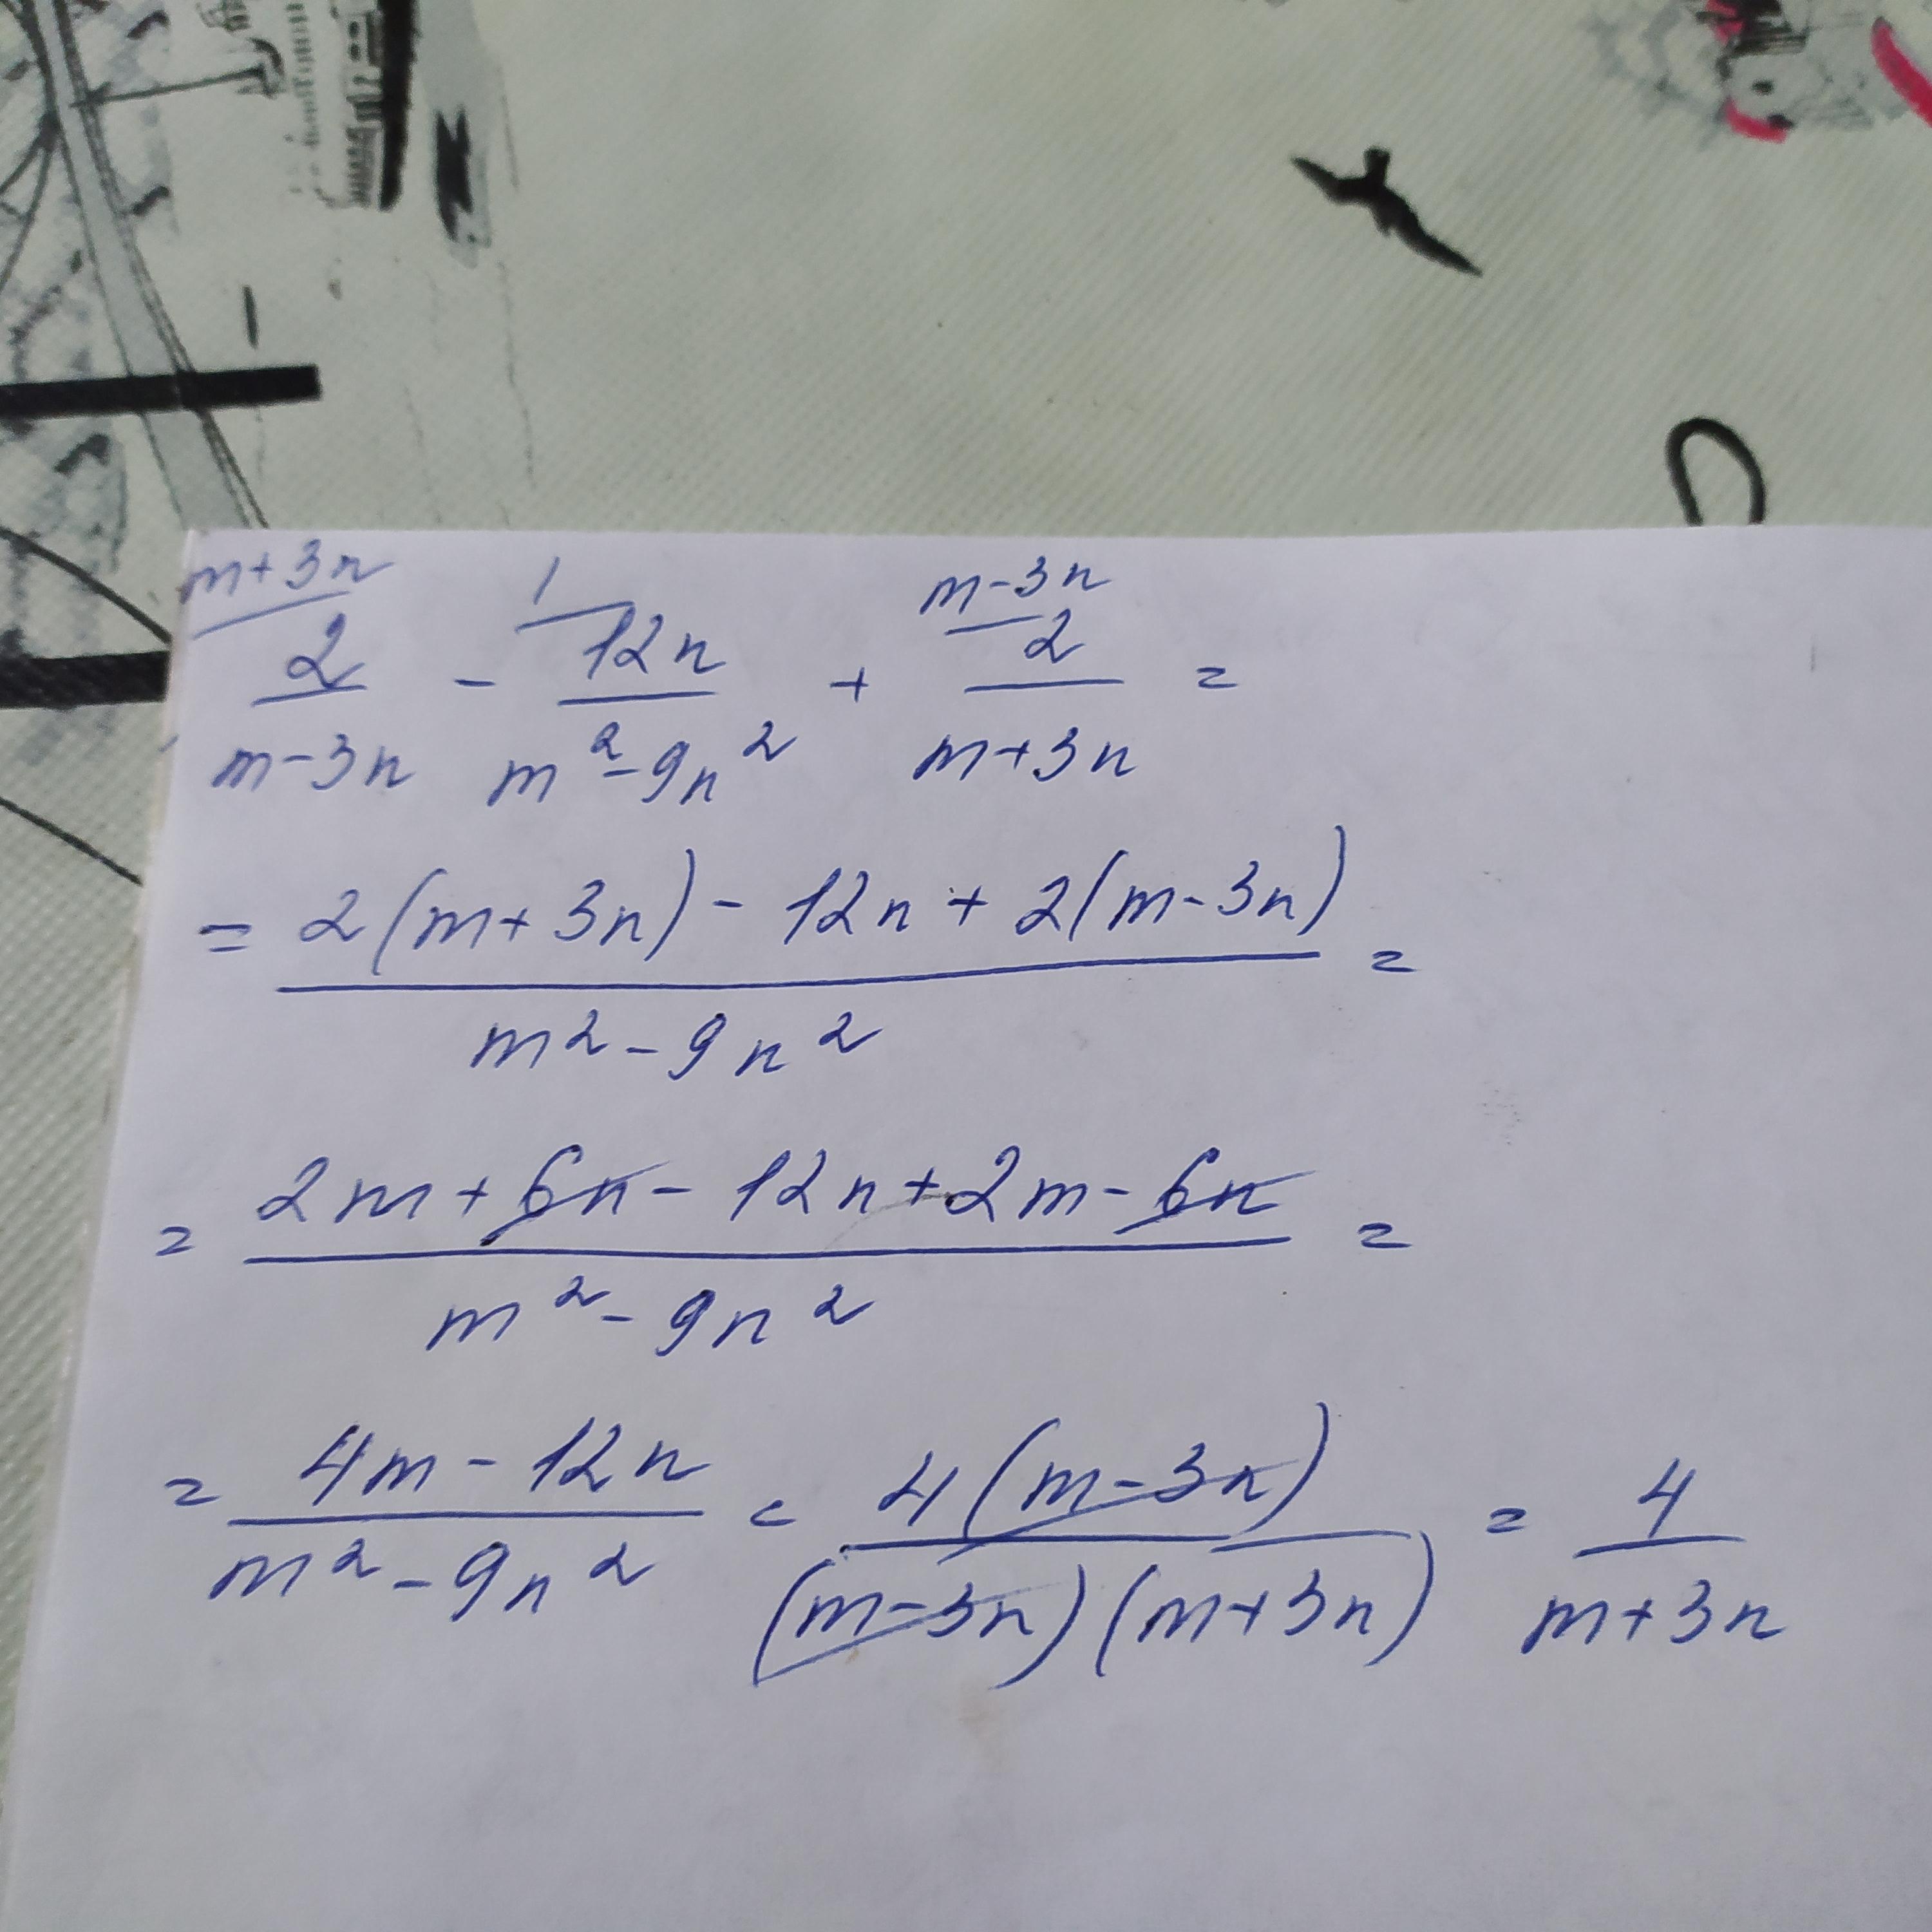 m+3n 1 m-3n
2/(m-3n) - 12n/(m²-9n²) + 2/(m+3n) =
= (2(m+3n) - 12n + 2(m-3n))/(m²-9n²) =
= (2m+6n-12n+2m-6n)/(m²-9n²) =
= (4m-12n)/(m²-9n²) = 4(m-3n)/((m-3n)(m+3n)) = 4/(m+3n)